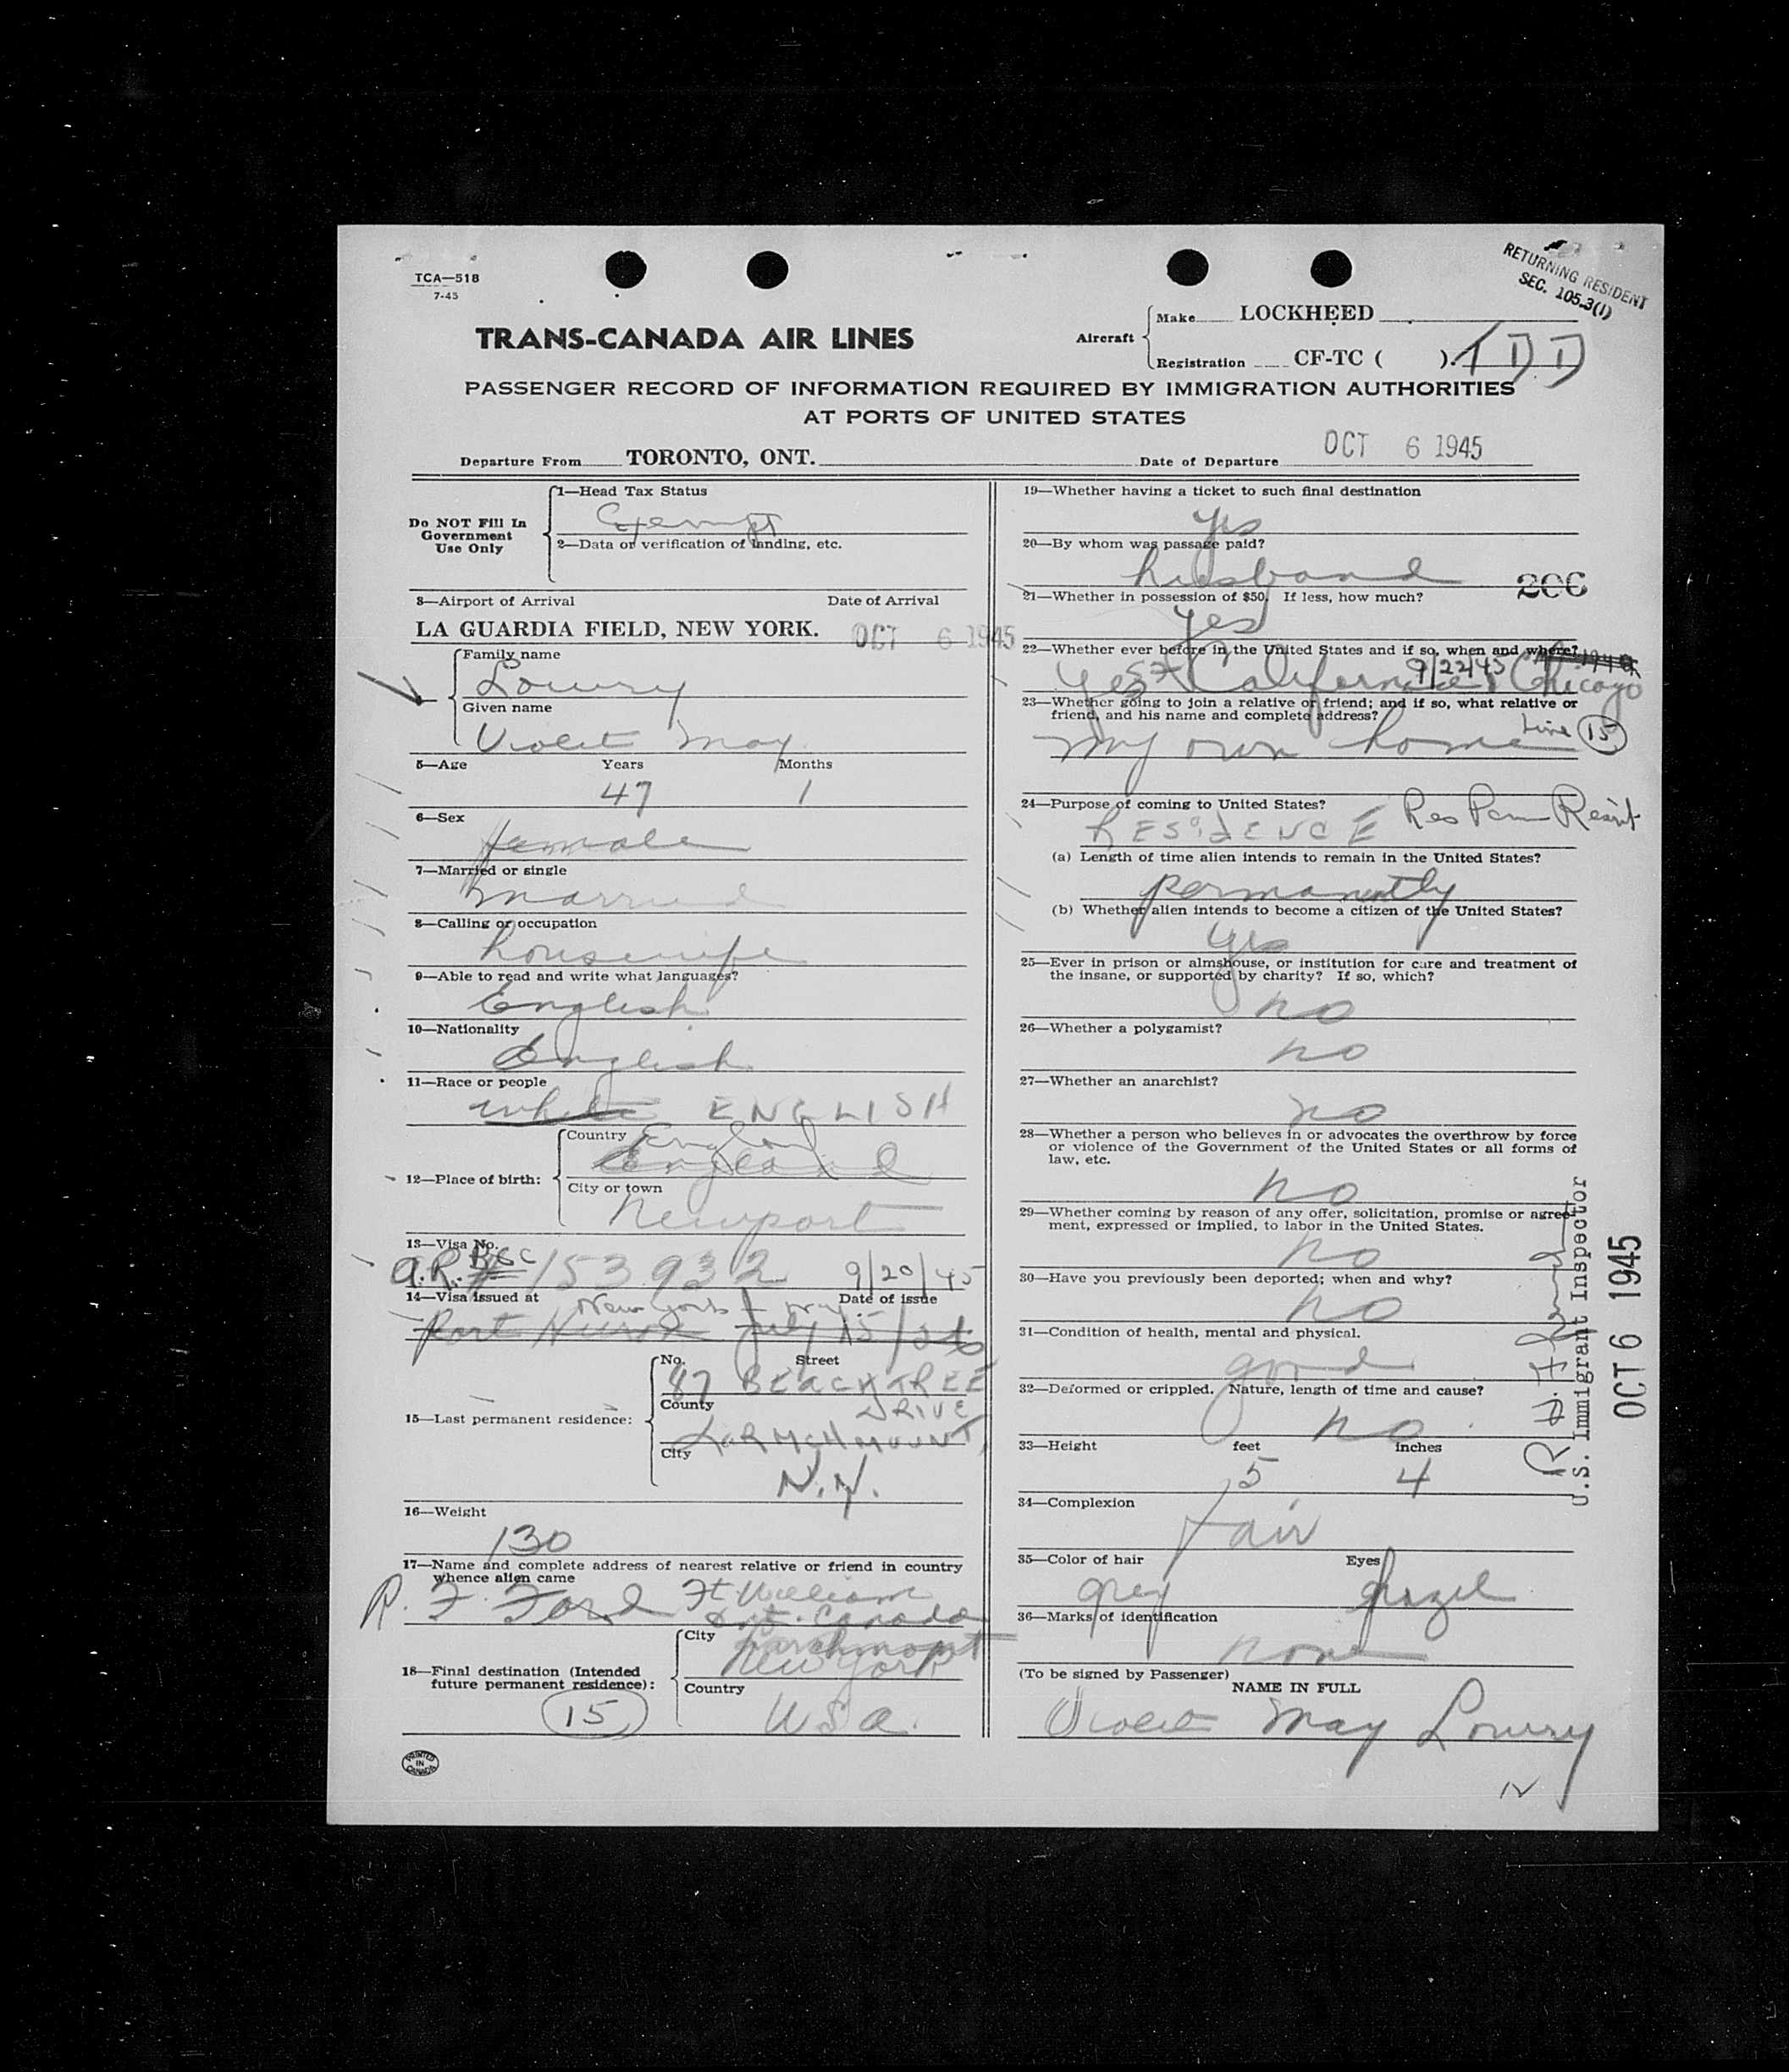 TCA—518
7-45
RETURNING RESIDENT
SEC. 105.3(1)
TRANS-CANADA AIR LINES
Aircraft
Make LOCKHEED
Registration CF-TC ( ). TDD
PASSENGER RECORD OF INFORMATION REQUIRED BY IMMIGRATION AUTHORITIES
AT PORTS OF UNITED STATES
Departure From TORONTO, ONT. Date of Departure OCT 6 1945
Do NOT Fill In
Government
Use Only
1—Head Tax Status
Exempt
2—Data or verification of landing, etc.
3—Airport of Arrival Date of Arrival
LA GUARDIA FIELD, NEW YORK. OCT 6 1945
Family name
Lowry
Given name
Violet May
5—Age Years Months
47 1
6—Sex
female
7—Married or single
married
8—Calling or occupation
housewife
9—Able to read and write what languages?
English
10—Nationality
English
11—Race or people
white ENGLISH
12—Place of birth:
Country England
England
City or town
Newport
13—Visa No.
A.R. # 153932 9/20/45
14—Visa issued at Date of issue
New York
Port Huron July 15/26
15—Last permanent residence:
No. Street
87 BEACH TREE
County DRIVE
LARMCHMOUNT,
City
N.Y.
16—Weight
130
17—Name and complete address of nearest relative or friend in country
whence alien came
R. F. Ford Ft William
Ont. Canada
18—Final destination (Intended
future permanent residence):
15
City Larchmont
New York
Country
USA.
PRINTED
IN
CANADA
19—Whether having a ticket to such final destination
yes
20—By whom was passage paid?
husband
206
21—Whether in possession of $50. If less, how much?
yes
22—Whether ever before in the United States and if so, when and where?
9/22/45
Yes California Chicago
23—Whether going to join a relative or friend; and if so, what relative or
friend, and his name and complete address?
my own home Line 15
24—Purpose of coming to United States?
RESIDENCE Res Perm Resint
(a) Length of time alien intends to remain in the United States?
permanently
(b) Whether alien intends to become a citizen of the United States?
yes
25—Ever in prison or almshouse, or institution for care and treatment of
the insane, or supported by charity? If so, which?
no
26—Whether a polygamist?
no
27—Whether an anarchist?
no
28—Whether a person who believes in or advocates the overthrow by force
or violence of the Government of the United States or all forms of
law, etc.
no
29—Whether coming by reason of any offer, solicitation, promise or agree-
ment, expressed or implied, to labor in the United States.
no
30—Have you previously been deported; when and why?
no
31—Condition of health, mental and physical.
good
32—Deformed or crippled. Nature, length of time and cause?
no
33—Height feet inches
5 4
34—Complexion
Fair
35—Color of hair Eyes
grey hazel
36—Marks of identification
none
(To be signed by Passenger)
NAME IN FULL
Violet May Lowry
U.S. Immigrant Inspector
OCT 6 1945